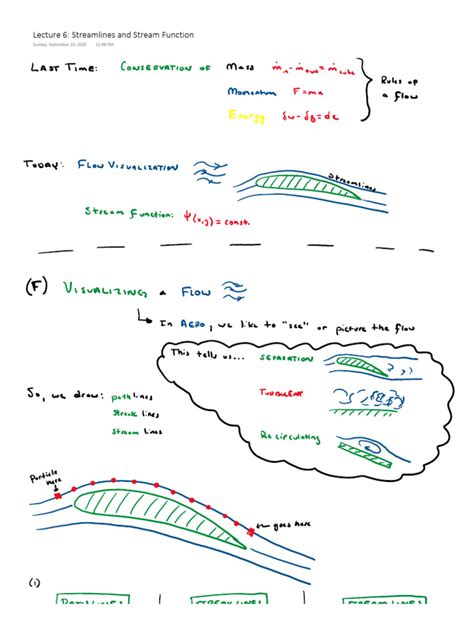 Lecture 6: Streamlines and Stream Function
Sunday, September 20, 2020 11:48 PM
LAST TIME: CONSERVATION OF Mass ṁin - ṁout = ṁcube
Momentum F = ma
Energy δw - δq = de
Rules of
a flow
TODAY: FLOW VISUALIZATION
Streamlines
Stream Function: Ψ(x,y) = const.
(F) VISUALIZING a FLOW
In AERO, we like to "see" or picture the flow
This tells us... SEPARATION
TURBULENT
Recirculating
So, we draw: path lines
Streak lines
Stream lines
Particle
here
goes here
(1)
PATHLINES
STREAKLINES
STREAMLINES